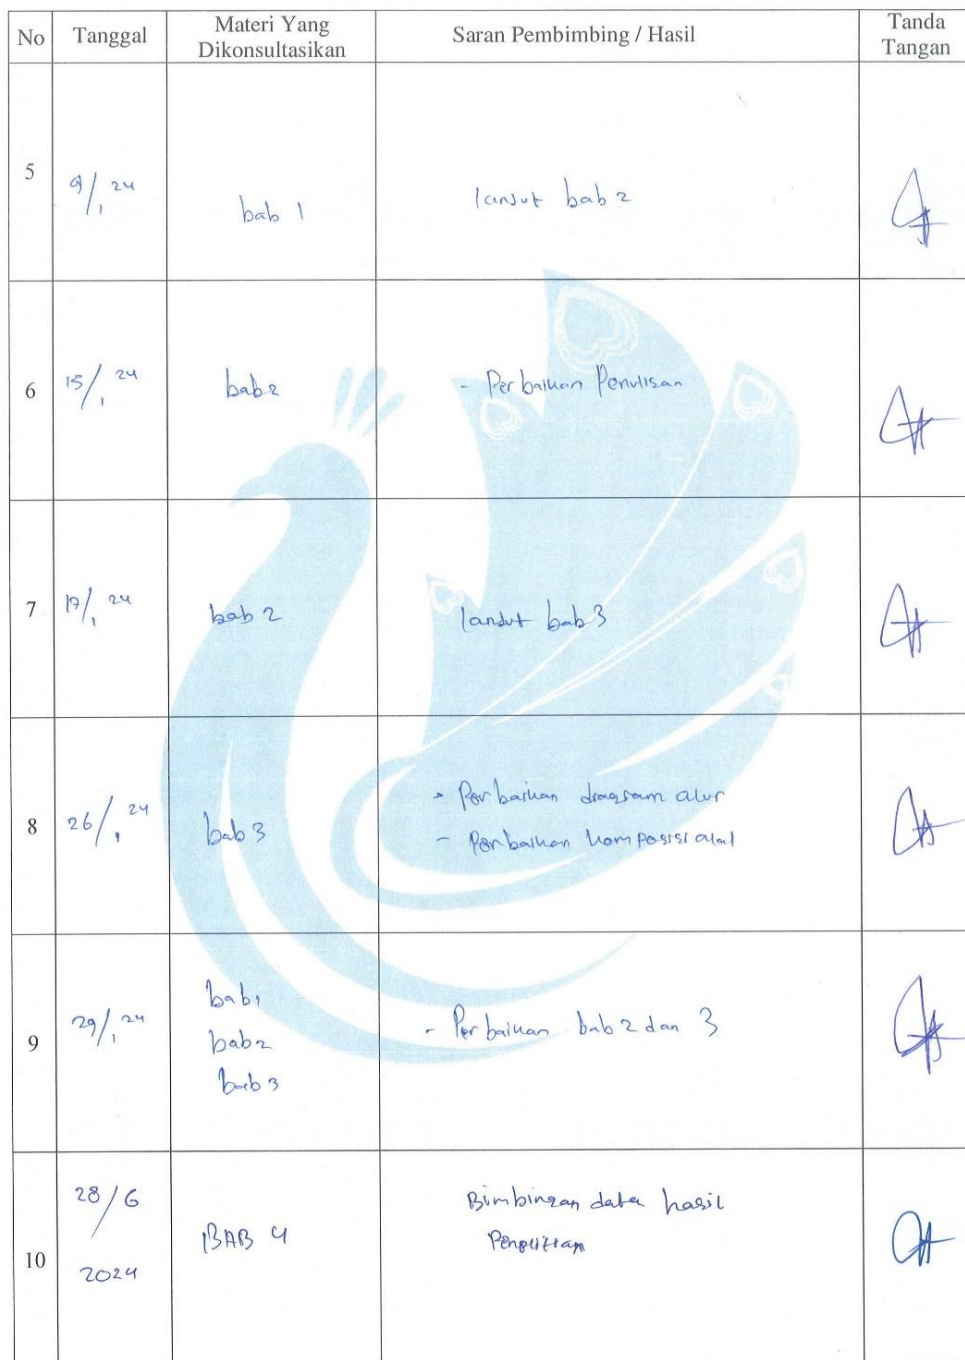 No Tanggal Materi Yang Dikonsultasikan Saran Pembimbing / Hasil Tanda Tangan
5 9/1 24 bab 1 lanjut bab 2
6 15/1 24 bab 2 - Perbaikan Penulisan
7 17/1 24 bab 2 lanjut bab 3
8 26/1 24 bab 3 - Perbaikan diagram alur
- Perbaikan komposisi alat
9 29/1 24 bab 1 - Perbaikan bab 2 dan 3
bab 2
bab 3
10 28/6 2024 BAB 4 Bimbingan data hasil
Penelitian